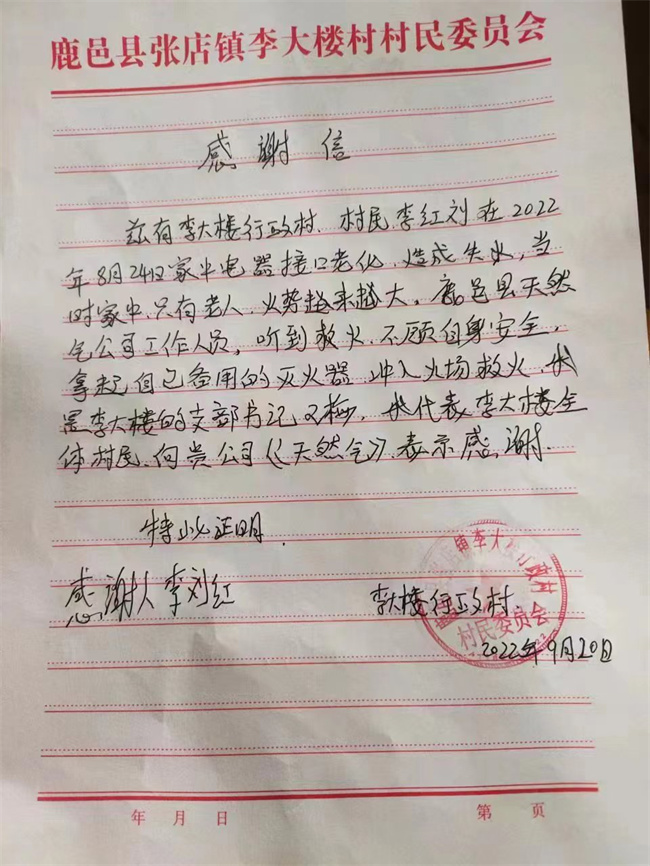 鹿邑县张店镇李大楼村村民委员会
感谢信
兹有李大楼行政村、村民李红刘在2022
年8月24日家中电器接口老化、造成失火,当
时家中只有老人、火势越来越大,鹿邑县天然
气公司工作人员,听到救火、不顾自身安全,
拿起自己备用的灭火器冲入火场救火、我
是李大楼的支部书记 梅,我代表李大楼全
体村民、向贵公司《天然气》表示感谢.
特此证明.
感谢人 李刘红
李大楼行政村
村民委员会
2022年9月20日
年 月 日
第 页